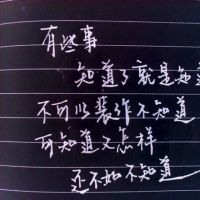 有些事
知道了就是知道
不可以装作不知道
可知道又怎样
还不如不知道